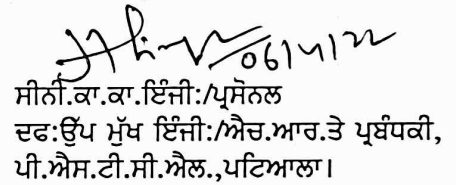 06/5/22
ਸੀਨੀ.ਕਾ.ਕਾ.ਇੰਜੀ:/ਪ੍ਰਸੋਨਲ
ਦਫ:ਉੱਪ ਮੁੱਖ ਇੰਜੀ:/ਐਚ.ਆਰ.ਤੇ ਪ੍ਰਬੰਧਕੀ,
ਪੀ.ਐਸ.ਟੀ.ਸੀ.ਐਲ.,ਪਟਿਆਲਾ।